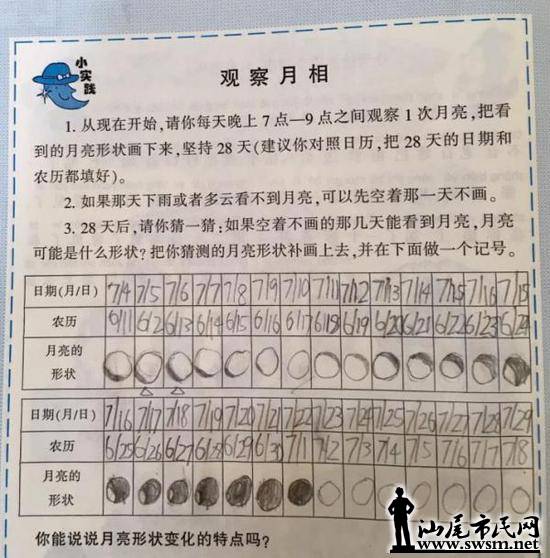 小实践
观察月相
1. 从现在开始,请你每天晚上 7 点—9 点之间观察 1 次月亮,把看
到的月亮形状画下来,坚持 28 天(建议你对照日历,把 28 天的日期和
农历都填好)。
2. 如果那天下雨或者多云看不到月亮,可以先空着那一天不画。
3. 28 天后,请你猜一猜:如果空着不画的那几天能看到月亮,月亮
可能是什么形状?把你猜测的月亮形状补画上去,并在下面做一个记号。
日期(月/日) 7/4 7/5 7/6 7/7 7/8 7/9 7/10 7/11 7/12 7/13 7/14 7/15 7/16 7/15
农历 6/11 6/12 6/13 6/14 6/15 6/16 6/17 6/18 6/19 6/20 6/21 6/22 6/23 6/24
月亮的
形状
日期(月/日) 7/16 7/17 7/18 7/19 7/20 7/21 7/22 7/23 7/24 7/25 7/26 7/27 7/28 7/29
农历 6/25 6/26 6/27 6/28 6/29 6/30 7/1 7/2 7/3 7/4 7/5 7/6 7/7 7/8
月亮的
形状
你能说说月亮形状变化的特点吗?
汕尾市民网
www.swsm.net